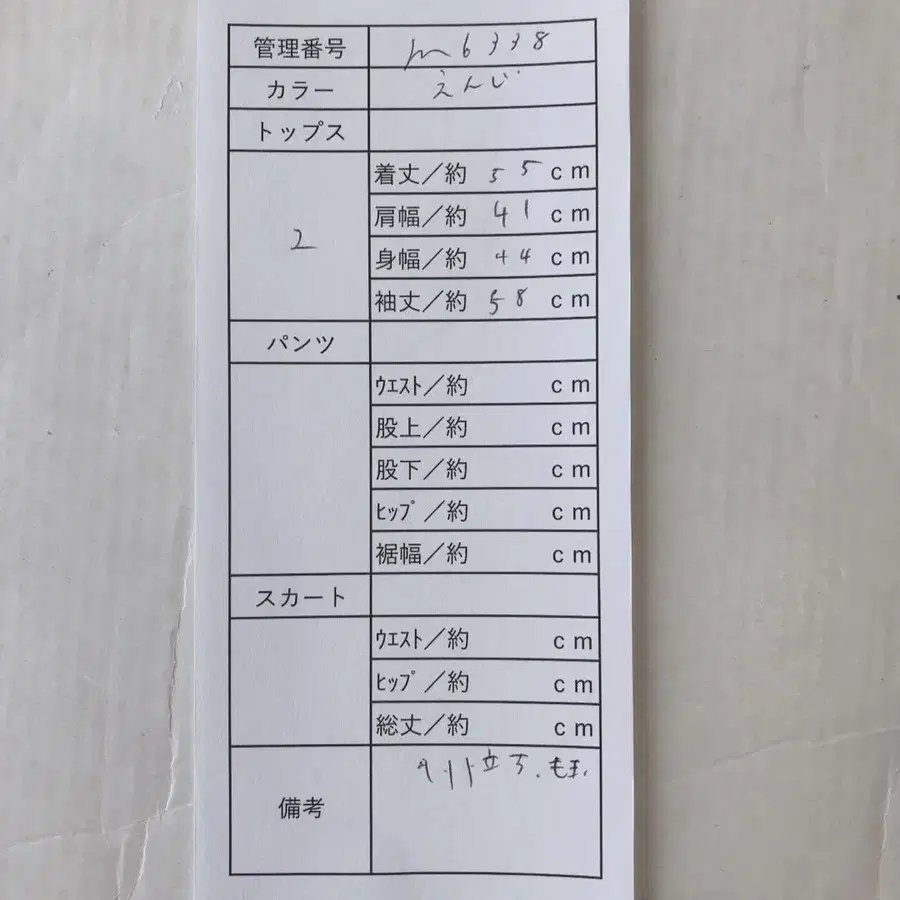 管理番号 m6338
カラー えんじ
トップス
2
着丈／約 55 cm
肩幅／約 41 cm
身幅／約 44 cm
袖丈／約 58 cm
パンツ
ｳｴｽﾄ／約 cm
股上／約 cm
股下／約 cm
ﾋｯﾌﾟ／約 cm
裾幅／約 cm
スカート
ｳｴｽﾄ／約 cm
ﾋｯﾌﾟ／約 cm
総丈／約 cm
備考 毛玉